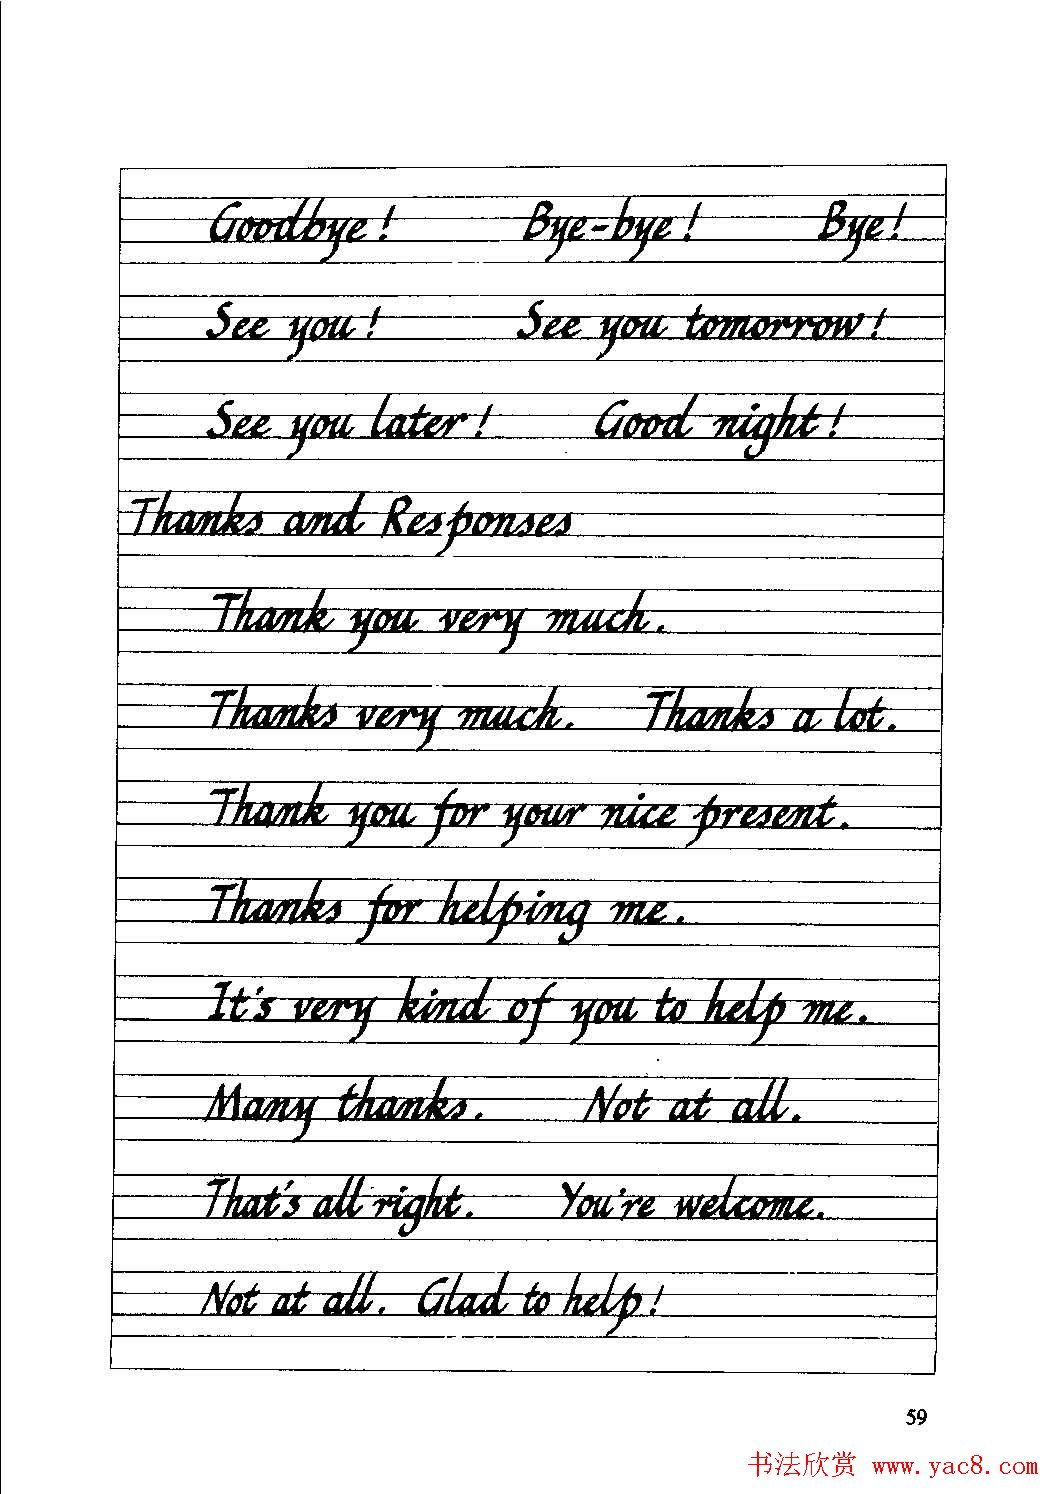 Goodbye! Bye-bye! Bye!
See you! See you tomorrow!
See you later! Good night!
Thanks and Responses
Thank you very much.
Thanks very much. Thanks a lot.
Thank you for your nice present.
Thanks for helping me.
It's very kind of you to help me.
Many thanks. Not at all.
That's all right. You're welcome.
Not at all. Glad to help!
59
书法欣赏 www.yac8.com